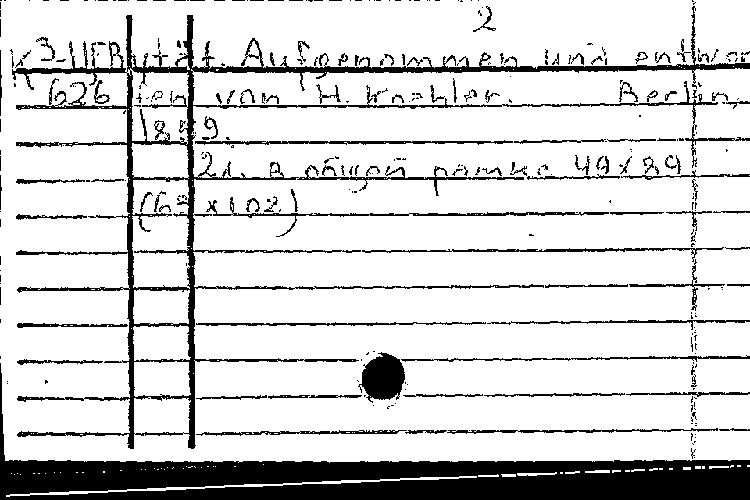 2
K 3-ЦЕР ytät. Aufgenommen und entwor
626 fen von H. Koehler. Berlin,
1899.
2л. в общей рамке 49x89
(67x102)